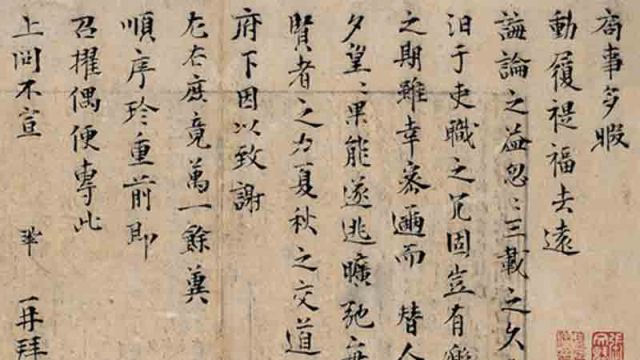 局事多暇
動履禔福去遠
誨論之益忽〻三載之久
汩于吏職之冗固豈有
之期雖幸密邇而替人
夕望〻果能遂逃曠弛
賢者之力夏秋之交道
府下因以致謝
左右庶竟萬一餘冀
順序珎重前即
召擢偶便專此
上問不宣 鞏 再拜